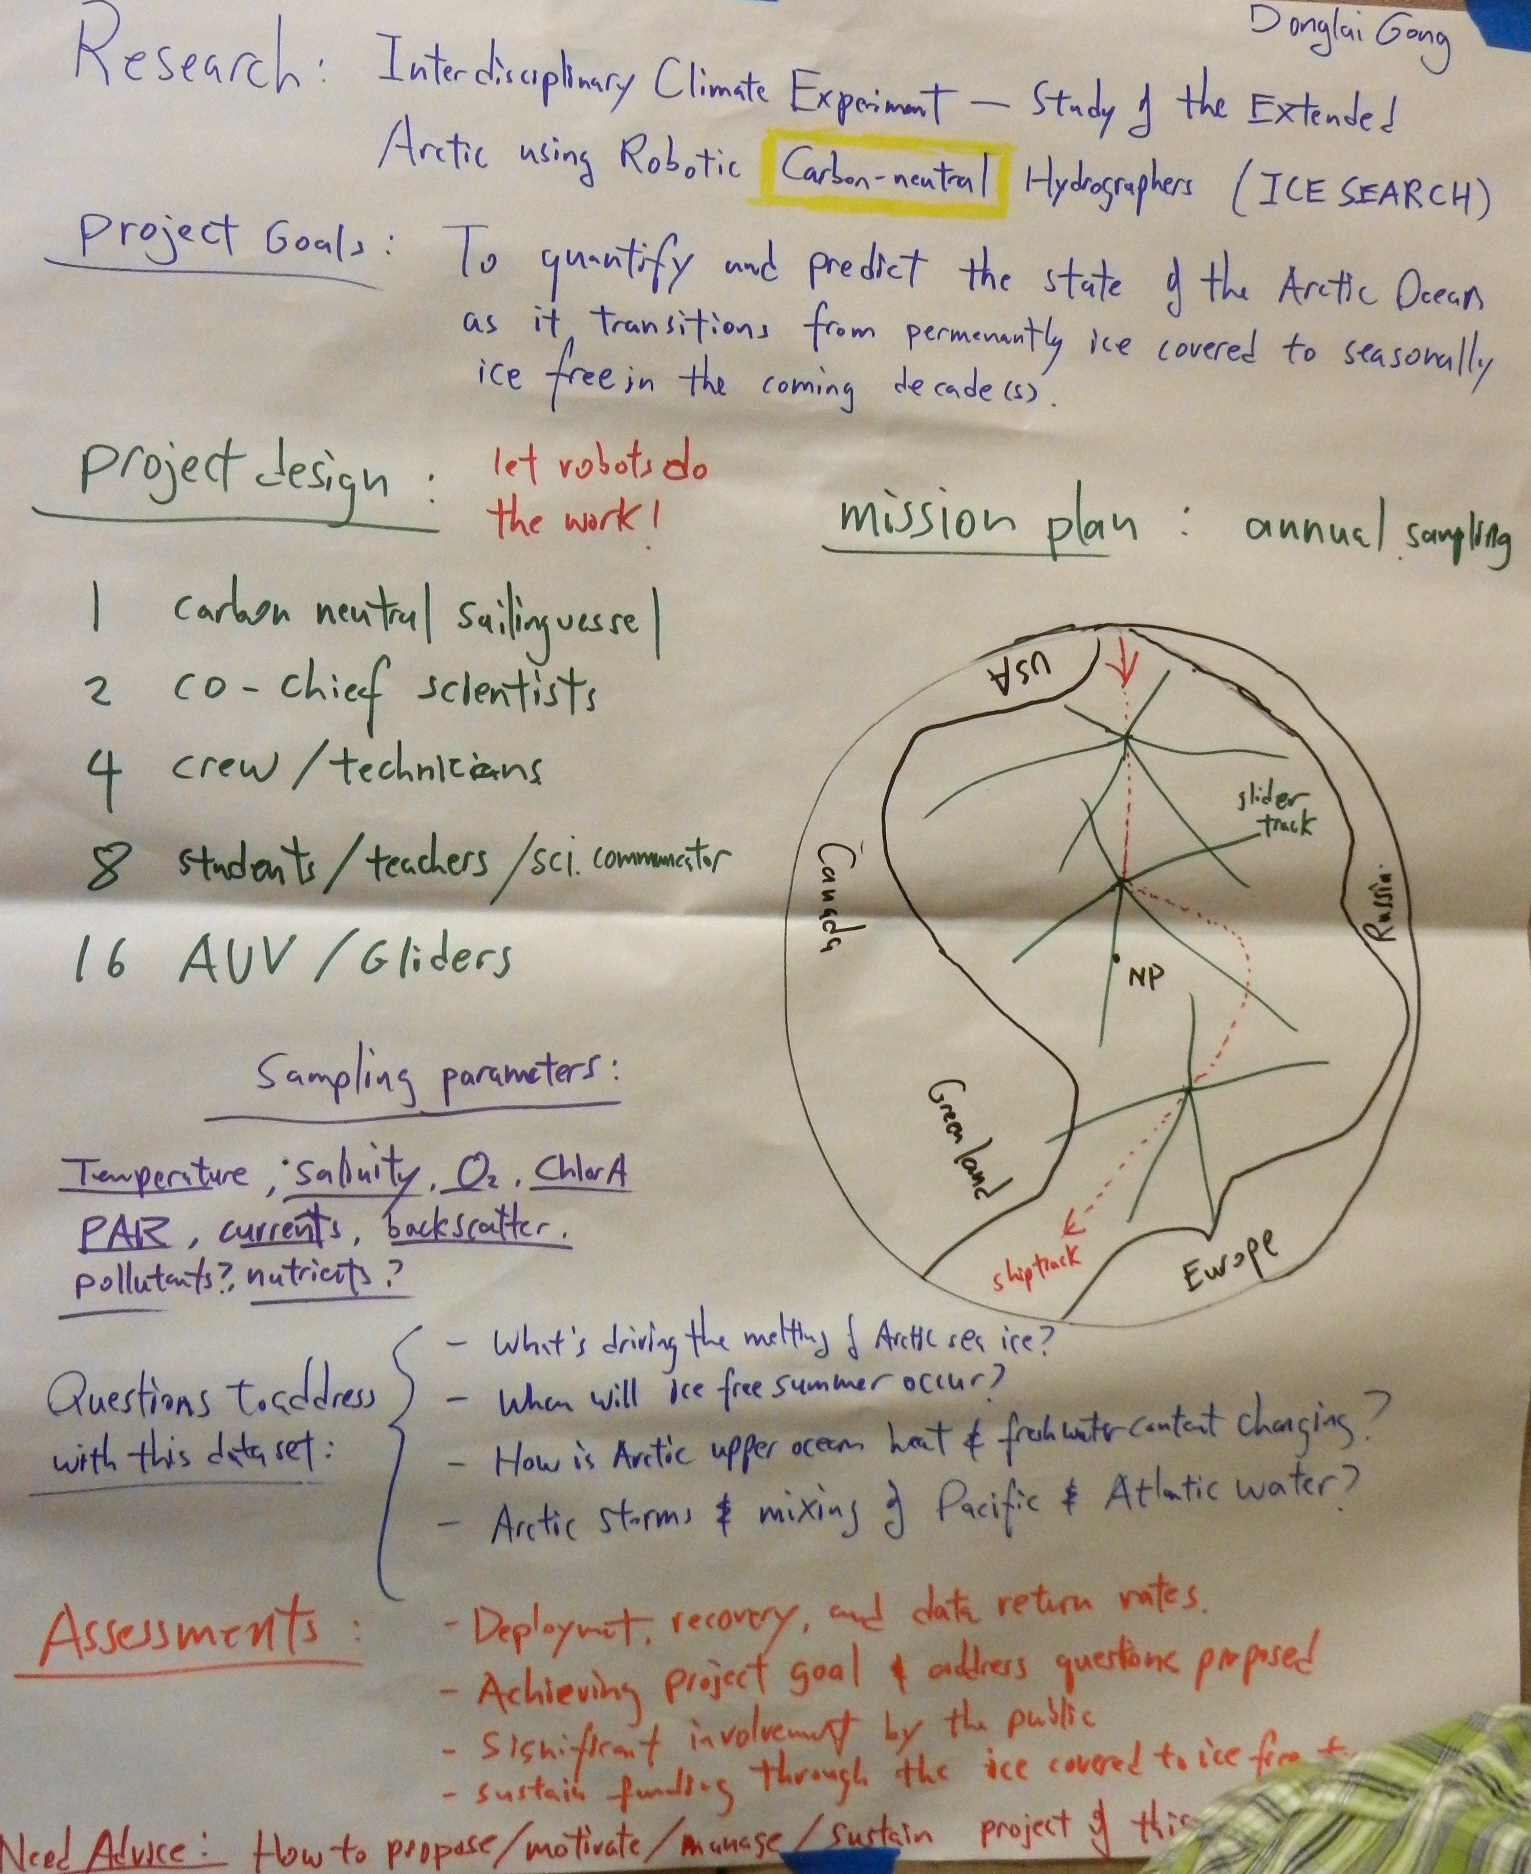 Donglai Gong
Research: Interdisciplinary Climate Experiment — Study of the Extended
Arctic using Robotic Carbon-neutral Hydrographers (ICE SEARCH)
Project Goals: To quantify and predict the state of the Arctic Ocean
as it transitions from permenantly ice covered to seasonally
ice free in the coming decade(s).
Project design: let robots do
the work!
1 carbon neutral sailing vessel
2 co-chief scientists
4 crew/technicians
8 students/teachers/sci. communicator
16 AUV/Gliders
mission plan: annual sampling
USA
glider
track
Canada
Russia
NP
Greenland
shiptrack
Europe
Sampling parameters:
Temperature, Salinity, O₂, Chlor A
PAR, currents, backscatter.
pollutants?, nutrients?
Questions to address
with this data set:
- What's driving the melting of Arctic sea ice?
- When will ice free summer occur?
- How is Arctic upper ocean heat & freshwater content changing?
- Arctic storms & mixing of Pacific & Atlatic water?
Assessments:
- Deployment, recovery, and data return rates.
- Achieving project goal & address questions proposed
- Significant involvement by the public
- sustain funding through the ice covered to ice free
Need Advice: How to propose/motivate/manage/sustain project of this